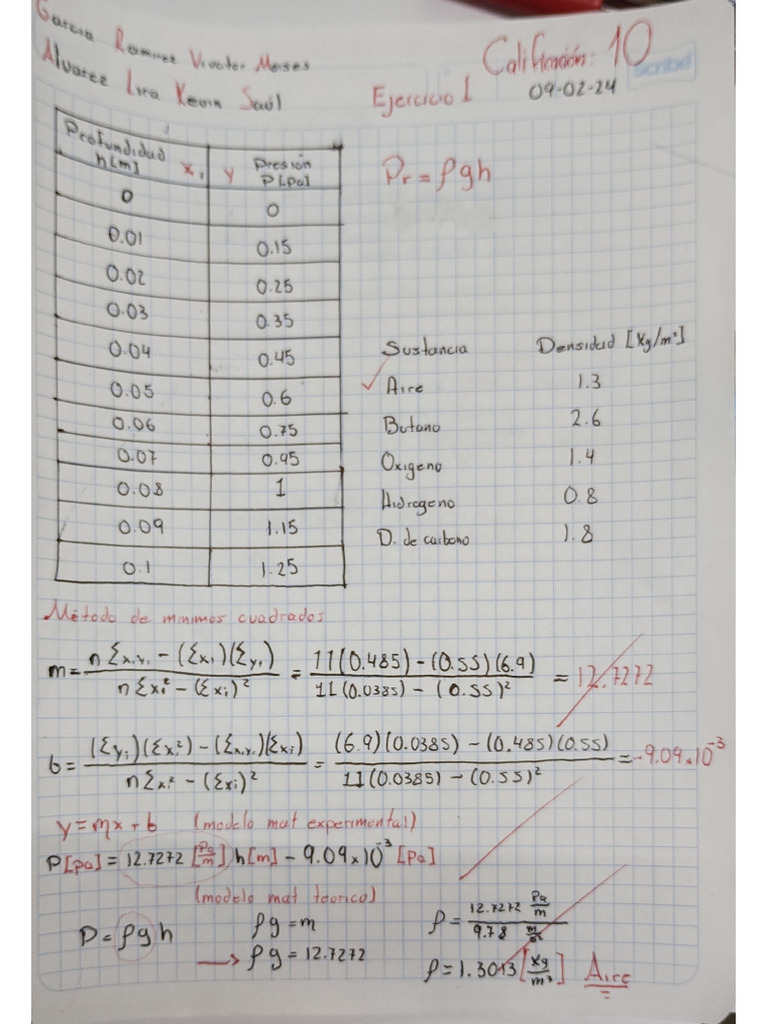 Garcia Ramirez Vivaldor Moises
Calificación: 10
Alvarez Lira Kevin Saúl
Ejercicio 1
09-02-24
Scribe
Profundidad h[m] x₁ | y Presión P[pa]
Pr = ρgh
0 | 0
0.01 | 0.15
0.02 | 0.25
0.03 | 0.35
0.04 | 0.45
0.05 | 0.6
0.06 | 0.75
0.07 | 0.95
0.08 | 1
0.09 | 1.15
0.1 | 1.25
Sustancia Densidad [Kg/m³]
✓ Aire 1.3
Butano 2.6
Oxigeno 1.4
Hidrogeno 0.8
D. de carbono 1.8
Método de minimos cuadrados
m = (nΣxᵢyᵢ - (Σxᵢ)(Σyᵢ)) / (nΣxᵢ² - (Σxᵢ)²) = (11(0.485) - (0.55)(6.9)) / (11(0.0385) - (0.55)²) = 12.7272
b = ((Σyᵢ)(Σxᵢ²) - (Σxᵢyᵢ)(Σxᵢ)) / (nΣxᵢ² - (Σxᵢ)²) = ((6.9)(0.0385) - (0.485)(0.55)) / (11(0.0385) - (0.55)²) = -9.09x10⁻³
y = mx + b (modelo mat experimental)
P[pa] = 12.7272 [Pa/m] h[m] - 9.09x10⁻³ [Pa]
(modelo mat teorico)
P = ρgh
ρg = m
→ ρg = 12.7272
ρ = (12.7272 Pa/m) / (9.78 m/s²)
ρ = 1.3013 [Kg/m³] Aire